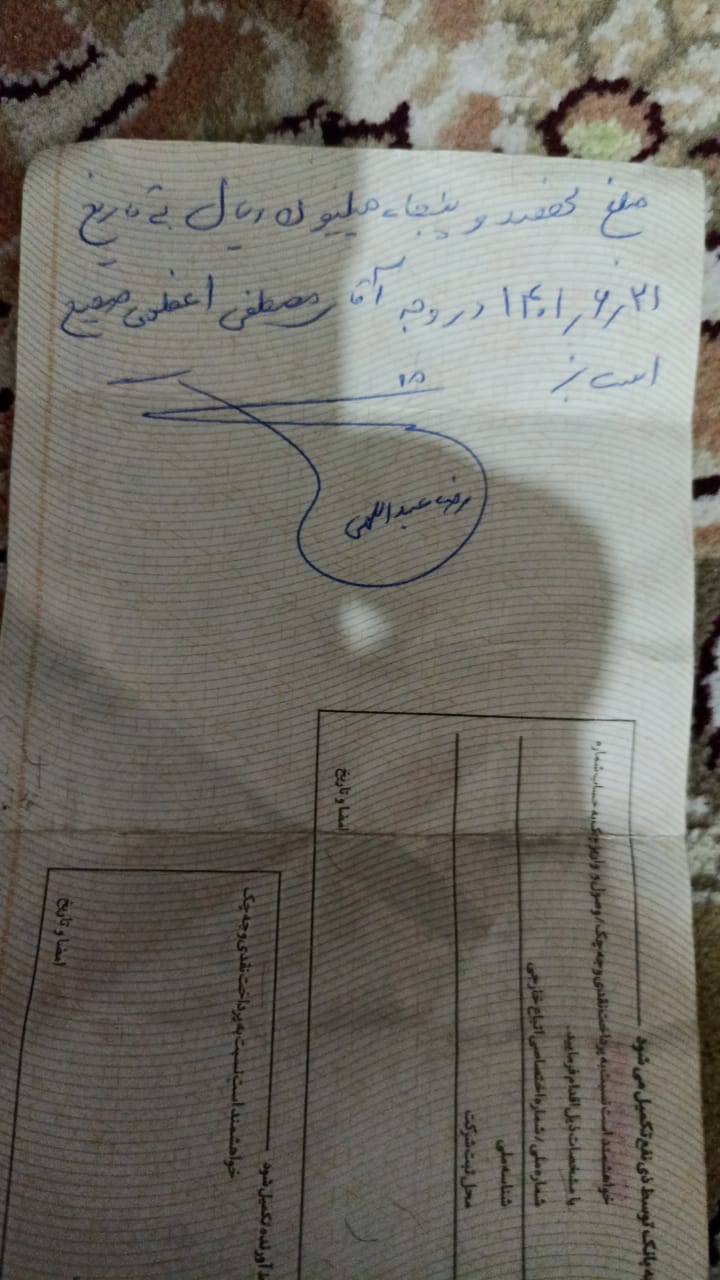 مبلغ نهصد و پنجاه میلیون ریال به تاریخ
۱۴۰۱٫۶٫۲۱ در وجه آقای مصطفی اعظمی صحیح
است
رضا عبداللهی
به بانک توسط ذی نفع تکمیل می شود
خواهشمند است نسبت به پرداخت نقدی وجه چک / وصول و واریز چک به حساب شماره
با مشخصات ذیل اقدام فرمایید.
شماره ملی / شماره اختصاصی اتباع خارجی
شناسه ملی
محل ثبت شرکت
امضا و تاریخ
آورنده تکمیل شود
خواهشمند است نسبت به پرداخت نقدی وجه چک
امضا و تاریخ